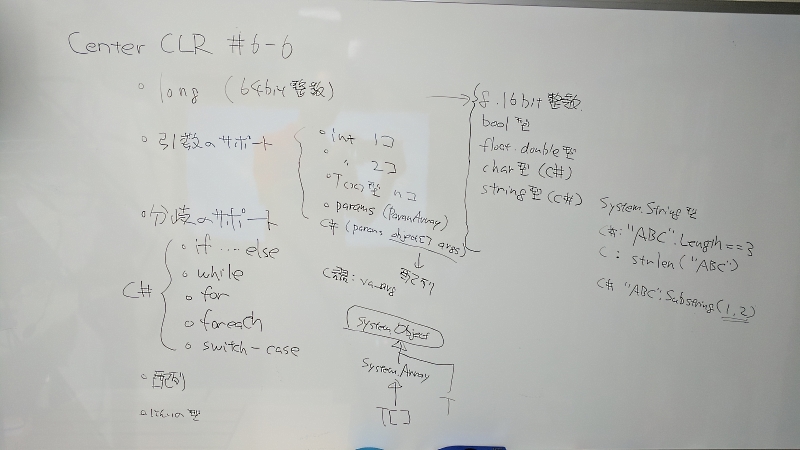 Center CLR #6-6
◦ long (64bit 整数)
◦ 引数のサポート
◦ int 1コ
◦ 〃 2コ
◦ T(パパ)型 nコ
◦ params (ParamArray)
C# (params object[] args)
配列
C言語: va-arg
→ 8.16bit 整数
bool 型
float.double 型
char型 (C#)
string型 (C#)
System.String 型
C#: "ABC".Length == 3
C: strlen("ABC")
C# "ABC".Substring(1,2)
◦ 分岐のサポート
C#
◦ if .... else
◦ while
◦ for
◦ foreach
◦ switch-case
◦ 配列
System.Object
System.Array
T[]
T